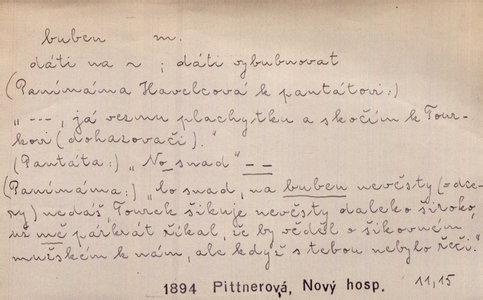 buben m.
dáti na ~ ; dáti vybubnovat
(Panímáma Havelcová k pantátovi:)
"---, já vezmu plachytku a skočím k Tour-
kovi (dohazovači)."
(Pantáta:) „No snad" --
(Panímáma:) „Co snad, na buben nevěsty (=dce-
ry) nedáš, Tourek šikuje nevěsty daleko široko,
už mě párkrát říkal, že by věděl o šikovném
mužském k nám, ale když s tebou nebylo řeči."
1894 Pittnerová, Nový hosp. 11,15